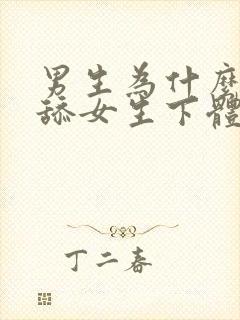 男生為什麼
舔女生下體
丁二春